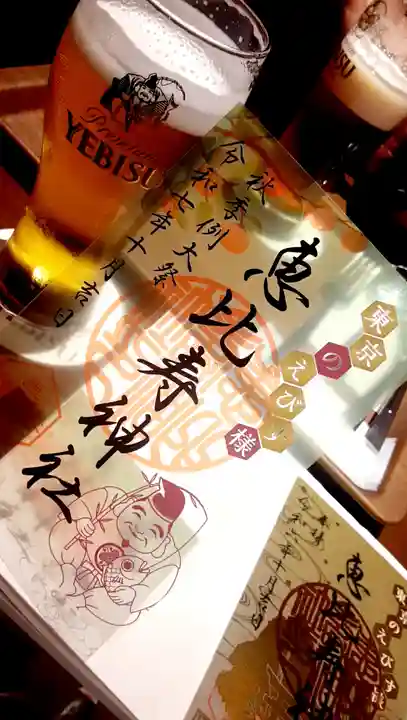 Premium
YEBISU
BISU
東京のえびす様
秋季例大祭
恵比寿神社
令和七年十月吉日
東京のえびす様
恵比寿神